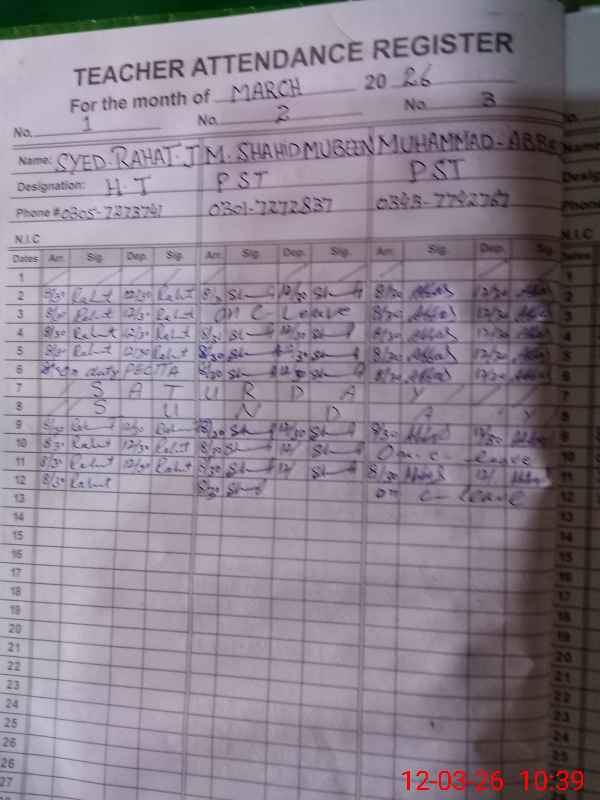 TEACHER ATTENDANCE REGISTER
For the month of MARCH 20 26
No. 1 No. 2 No. 3
Name: SYED. RAHAT. J M. SHAHID MUBEEN MUHAMMAD - ABBA
Designation: H. T PST PST
Phone # 0305-7373741 0301-7272837 0343-7742767
N.I.C N.I.C
Dates Arr. Sig. Dep. Sig. Arr. Sig. Dep. Sig. Arr. Sig. Dep. Sig.
1
2 8/30 Rahat 12/30 Rahat 8/30 12/30 8/30 Abbas 12/30 Abbas
3 8/30 Rahat 12/30 Rahat On C- Leave 8/30 Abbas 12/30 Abbas
4 8/30 Rahat 12/30 Rahat 8/30 12/30 8/30 Abbas 12/30 Abbas
5 8/30 Rahat 12/30 Rahat 8/30 12/30 8/30 Abbas 12/30 Abbas
6 on duty 8/30 12/30 8/30 Abbas 12/30 Abbas
7 S A T U R D A Y
8 S U N D A Y
9 8/30 Rahat 12/30 Rahat 8/30 12/30 8/30 Abbas 12/30 Abbas
10 8/30 Rahat 12/30 Rahat 8/30 12/ On C- Leave
11 8/30 Rahat 12/30 Rahat 8/30 12/ 8/30 Abbas 12/ Abbas
12 8/30 Rahat 8/30 on C- Leave
13
14
15
16
17
18
19
20
21
22
23
24
25
26
26
27
12-03-26 10:39